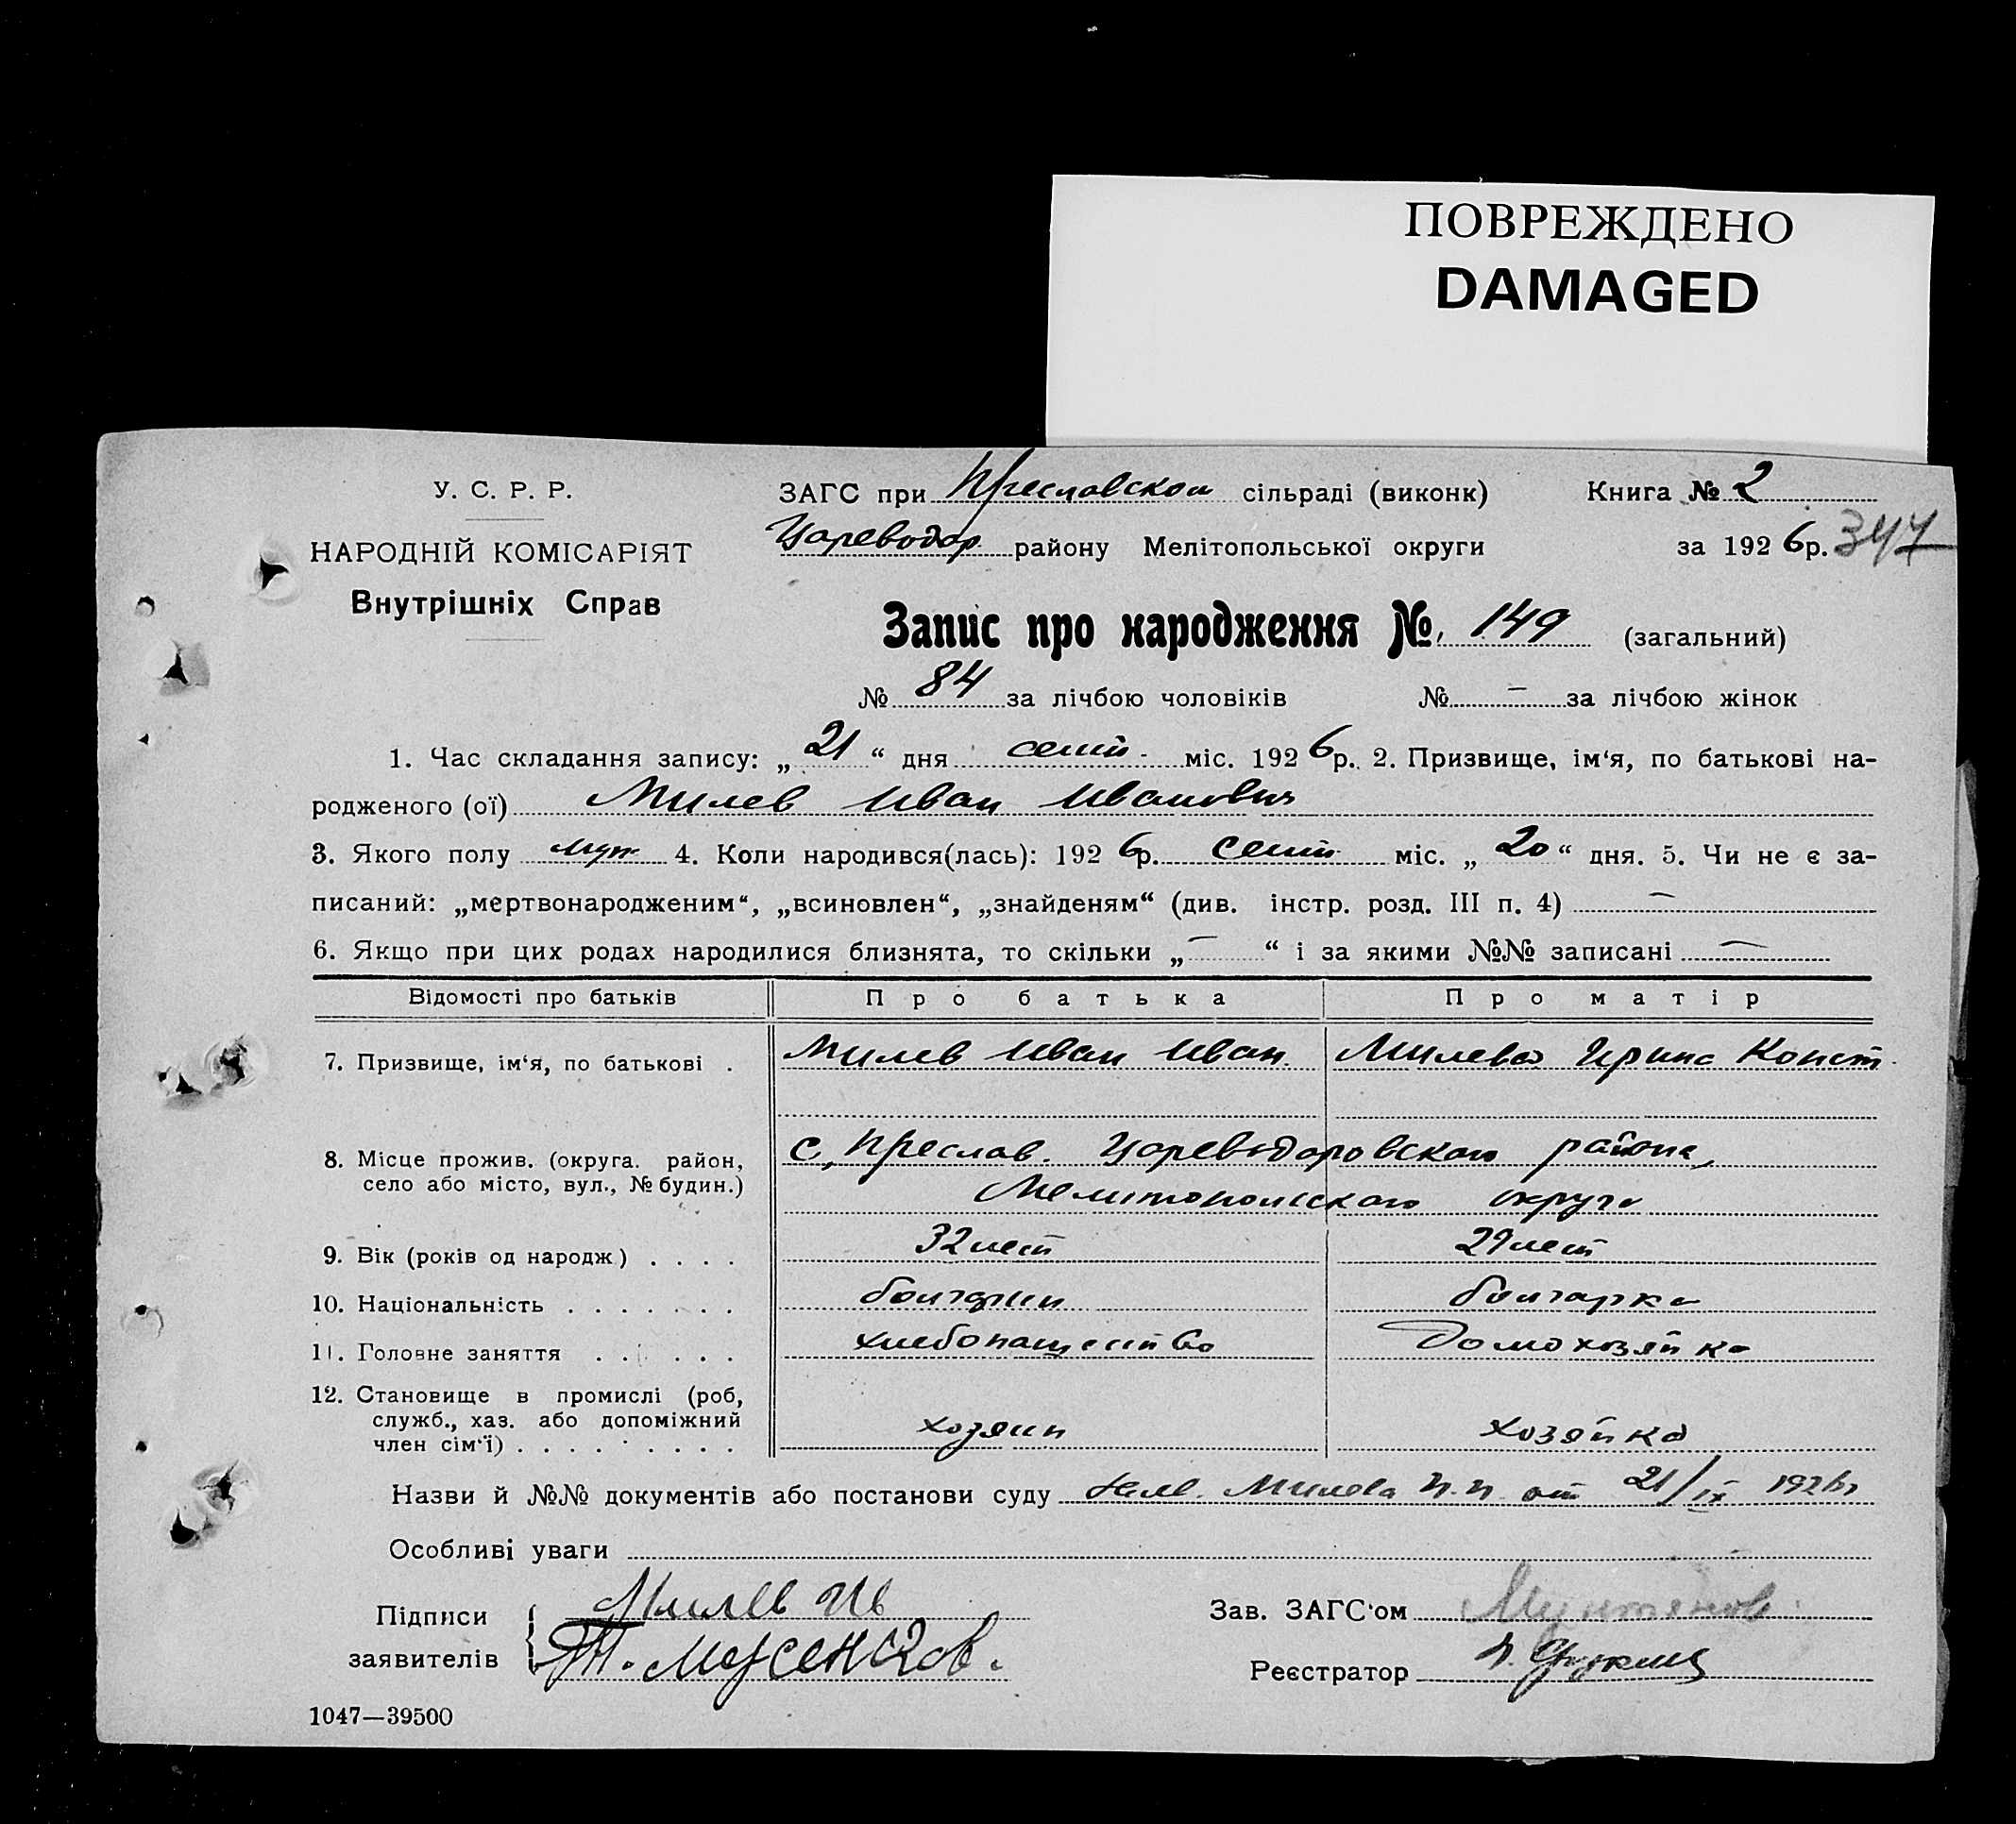 ПОВРЕЖДЕНО
DAMAGED
У. С. Р. Р.
НАРОДНІЙ КОМІСАРІЯТ
Внутрішніх Справ
ЗАГС при Преславском сільраді (виконк) Книга № 2
Цареводар. району Мелітопольської округи за 1926р. 347
Запис про народження № 149 (загальний)
№ 84 за лічбою чоловіків № — за лічбою жінок
1. Час складання запису: „21“ дня сент. міс. 1926р. 2. Призвище, ім‘я, по батькові на-
родженого (ої) Милев Иван Иванович
3. Якого полу муж. 4. Коли народився(лась): 1926р. сент. міс. „20“ дня. 5. Чи не є за-
писаний: „мертвонародженим“, „всиновлен“, „знайденям“ (див. інстр. розд. III п. 4) —
6. Якщо при цих родах народилися близнята, то скільки „—“ і за якими №№ записані —
Відомості про батьків Про батька Про матір
7. Призвище, ім‘я, по батькові . Милев Иван Иван. Милева Ирина Конст.
8. Місце прожив. (округа. район, село або місто, вул., № будин.) с. Преслав. Цареводаровского района,
Мелитопольского округа
9. Вік (років од народж) . . . . 32 лет 29 лет
10. Національність . . . . . . . болгарин болгарка
11. Головне заняття . . . . . . хлебопашество Домохозяйка
12. Становище в промислі (роб,
служб., хаз. або допоміжний
член сім‘ї) . . . . . . . . . . хозяин хозяйка
Назви й №№ документів або постанови суду Милева от 21/IX 1926г
Особливі уваги
Підписи Милев Ив Зав. ЗАГС‘ом
заявителів Реєстратор
1047—39500